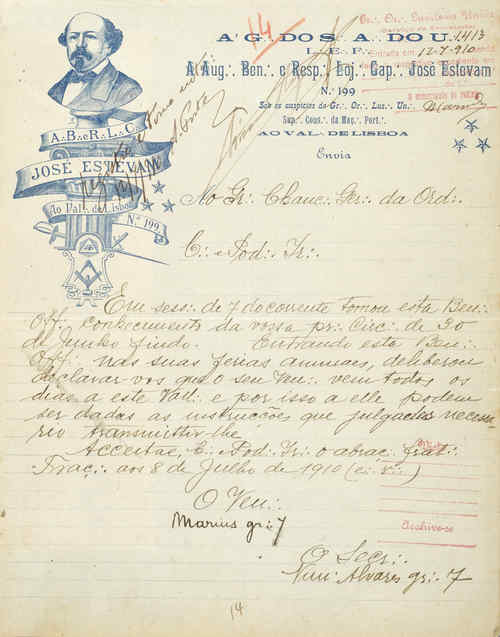 14
Gr∴ Or∴ Lusitano Unido
1413
Entrada em 12-7-910
A∴ G∴ DO S∴ A∴ DO U∴
L∴ E∴ F∴
A Aug∴ Ben∴ e Resp∴ Loj∴ Cap∴ José Estevam
N.º 199
Sob os auspicios do Gr∴ Or∴ Lus∴ Un∴
Sup∴ Cons∴ da Maç∴ Port∴
AO VAL∴ DE LISBOA
Envia
A∴ B∴ e R∴ L∴ C∴
JOSÉ ESTEVAM
Ao Val∴ de Lisboa
N.º 199
Ao Gr∴ Chanc∴ Ger∴ da Ord∴
C∴ e Pod∴ Ir∴
Em sess∴ de 7 do corrente tomou esta Ben∴
Off∴ conhecimento da vossa pr∴ Circ∴ de 30
de junho findo. Entrando esta Ben∴
Off∴ nas suas ferias annuaes, deliberou
declarar vos que o seu Ven∴ vem todos os
dias a este Vall∴ e por isso a elle podem
ser dadas as instrucções que julgardes necessa
rio transmittir-lhe.
Acceitae, C∴ e Pod∴ Ir∴ o abraç∴ frat∴
Traç∴ aos 8 de Julho de 1910 (e∴ v∴)
Archive-se
O Ven∴
Marius gr∴ 7
O Secr∴
Alvares gr∴ 7
14